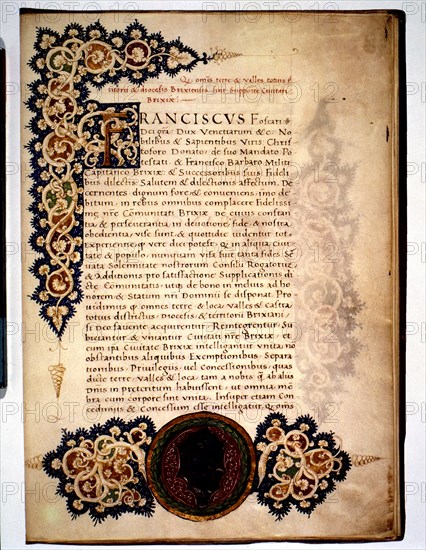 Q omes terre & valles totius t
ritorii & diocesis Brixiensis sint Supposite Civitati
BRIXIE:
FRANCISCVS Foscari
Dei gra Dux Venetiarum &c. No
bilibus & Sapientibus Viris Chris
toforo Donato de suo Mandato Po
testati & Francisco Barbaro Militi
Capitaneo Brixiæ & Successoribus suis Fideli
bus dilectis Salutem & dilectionis affectum. De
cernentes dignum fore & conveniens, imo de
bitum in rebus omnibus complacere Fidelissi
mę nrę Comunitati Brixiæ De cuius constan
tia & perseverantia in devotione, fide & nostra
obedientia, visę sunt & quottidie videntur tot
experientię q vere dici potest, Q in aliqua civi
tate & populo, nunquam visa sunt tanta fides Ser
vata Solemnitate nostrorum Consilii Rogatorum
& additionis pro satisfactione Supplicationis di
ctę Comunitatis, utq de bono in melius ad ho
norem & Statum nri Dominii se disponat. Pro
vidimus q omnes terrę & loca, valles & castra
totius districtus, Diocesis & territorii Brixiani
si deo favente acquirentur, Reintegrentur, Su
biciantur & uniantur Civitati nrę Brixiæ, et
cum ipa Civitate Brixiæ intelligantur unita no
obstantibus aliquibus Exemptionibus, Separa
tionibus, Privilegiis, vel Concessionibus, quas
dictę terrę, valles & loca, tam a nobis q ab aliis
dnis in pretentum habuissent, ut omnia mē
bra cum corpore sint unita. Insuper etiam Con
cedimus & Concessum esse intelligatur, Q omes